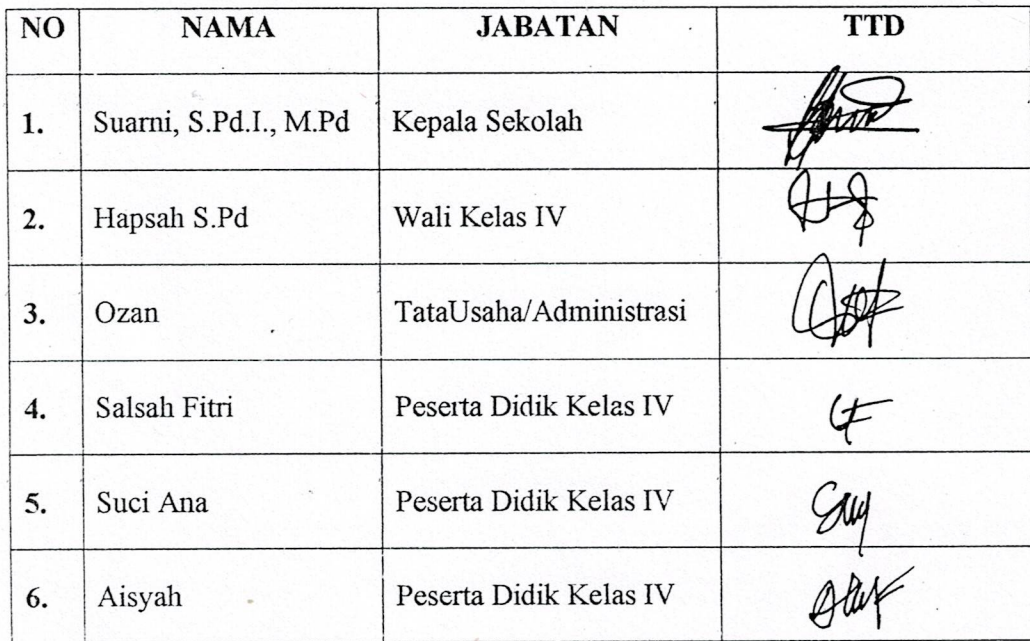 NO NAMA JABATAN TTD
1. Suarni, S.Pd.I., M.Pd Kepala Sekolah
2. Hapsah S.Pd Wali Kelas IV
3. Ozan TataUsaha/Administrasi
4. Salsah Fitri Peserta Didik Kelas IV
5. Suci Ana Peserta Didik Kelas IV
6. Aisyah Peserta Didik Kelas IV